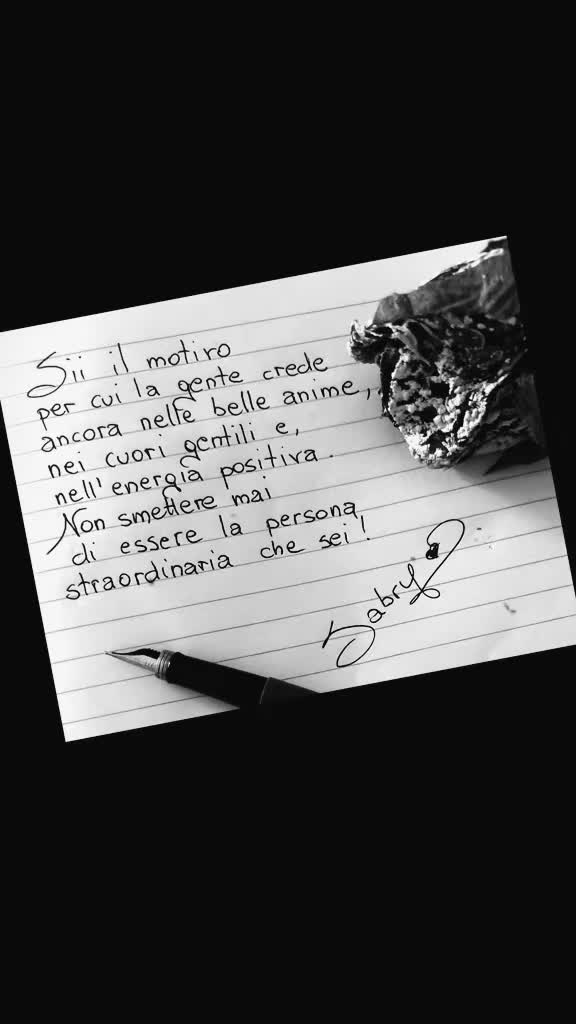 Sii il motivo
per cui la gente crede
ancora nelle belle anime,
nei cuori gentili e,
nell'energia positiva.
Non smettere mai
di essere la persona
straordinaria che sei!
Sabry